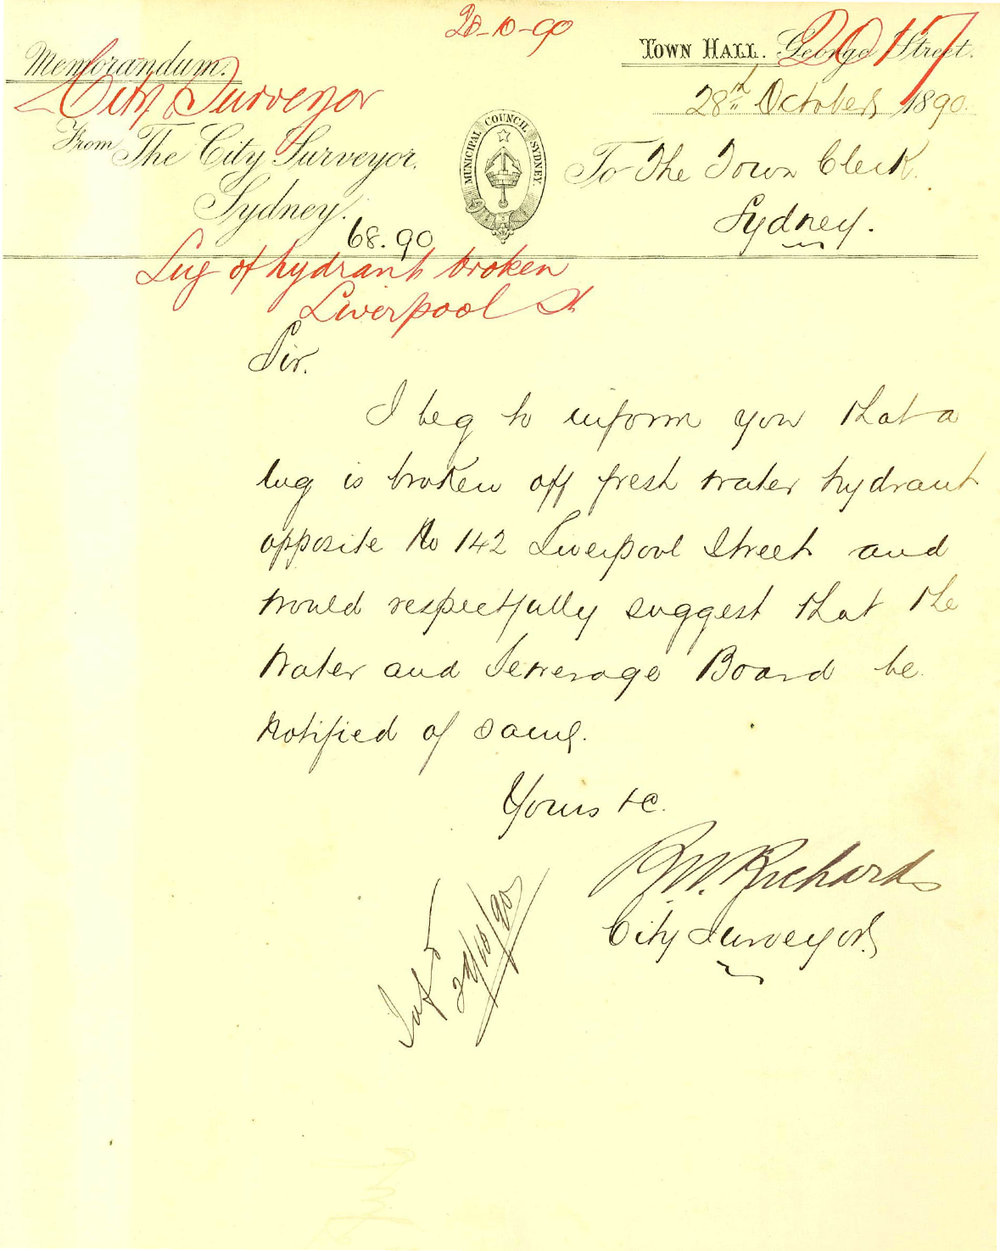 28-10-90
2017
Memorandum.
TOWN HALL. George Street.
City Surveyor
28th October, 1890.
From The City Surveyor,
Sydney.
MUNICIPAL COUNCIL SYDNEY.
To The Town Clerk.
Sydney.
68.90
Lug of hydrant broken
Liverpool St
Sir.
I beg to inform you that a
lug is broken off fresh water hydrant
opposite No 142 Liverpool Street and
would respectfully suggest that the
Water and Sewerage Board be
notified of same.
Yours &c.
R.W. Richards
City Surveyor